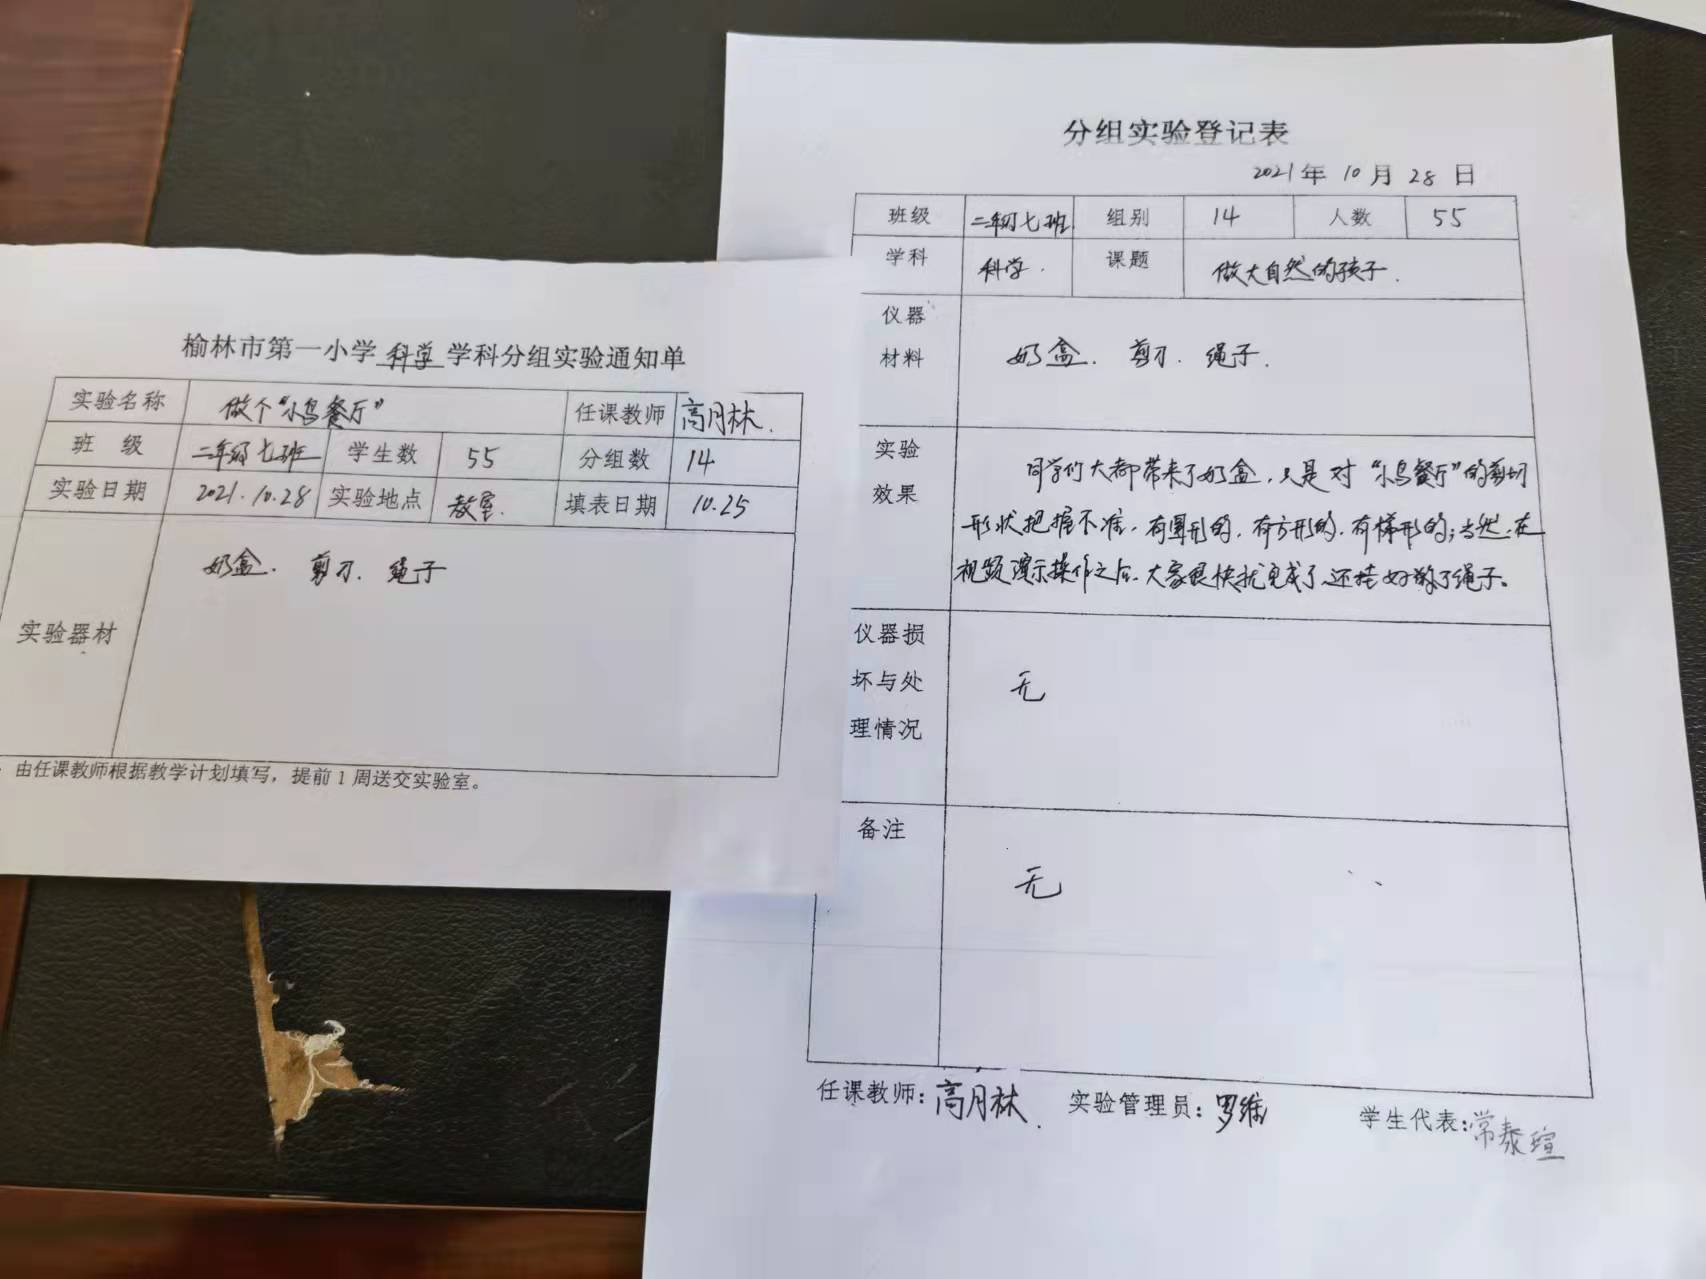 榆林市第一小学 科学 学科分组实验通知单
实验名称 做个“小鸟餐厅” 任课教师 高月林.
班 级 二年级七班 学生数 55 分组数 14
实验日期 2021.10.28 实验地点 教室. 填表日期 10.25
实验器材 奶盒. 剪刀. 绳子
由任课教师根据教学计划填写，提前1周送交实验室。
分组实验登记表
2021年 10月 28日
班级 二年级七班 组别 14 人数 55
学科 科学. 课题 做大自然的孩子.
仪器
材料 奶盒. 剪刀. 绳子.
实验
效果
同学们大都带来了奶盒，只是对“小鸟餐厅”的剪切
形状把握不准，有圆形的，有方形的，有梯形的；当然，在
视频演示操作之后，大家很快就完成了，还挂好了绳子。
仪器损
坏与处
理情况
无
备注
无
任课教师：高月林. 实验管理员：罗维 学生代表：常泰瑄